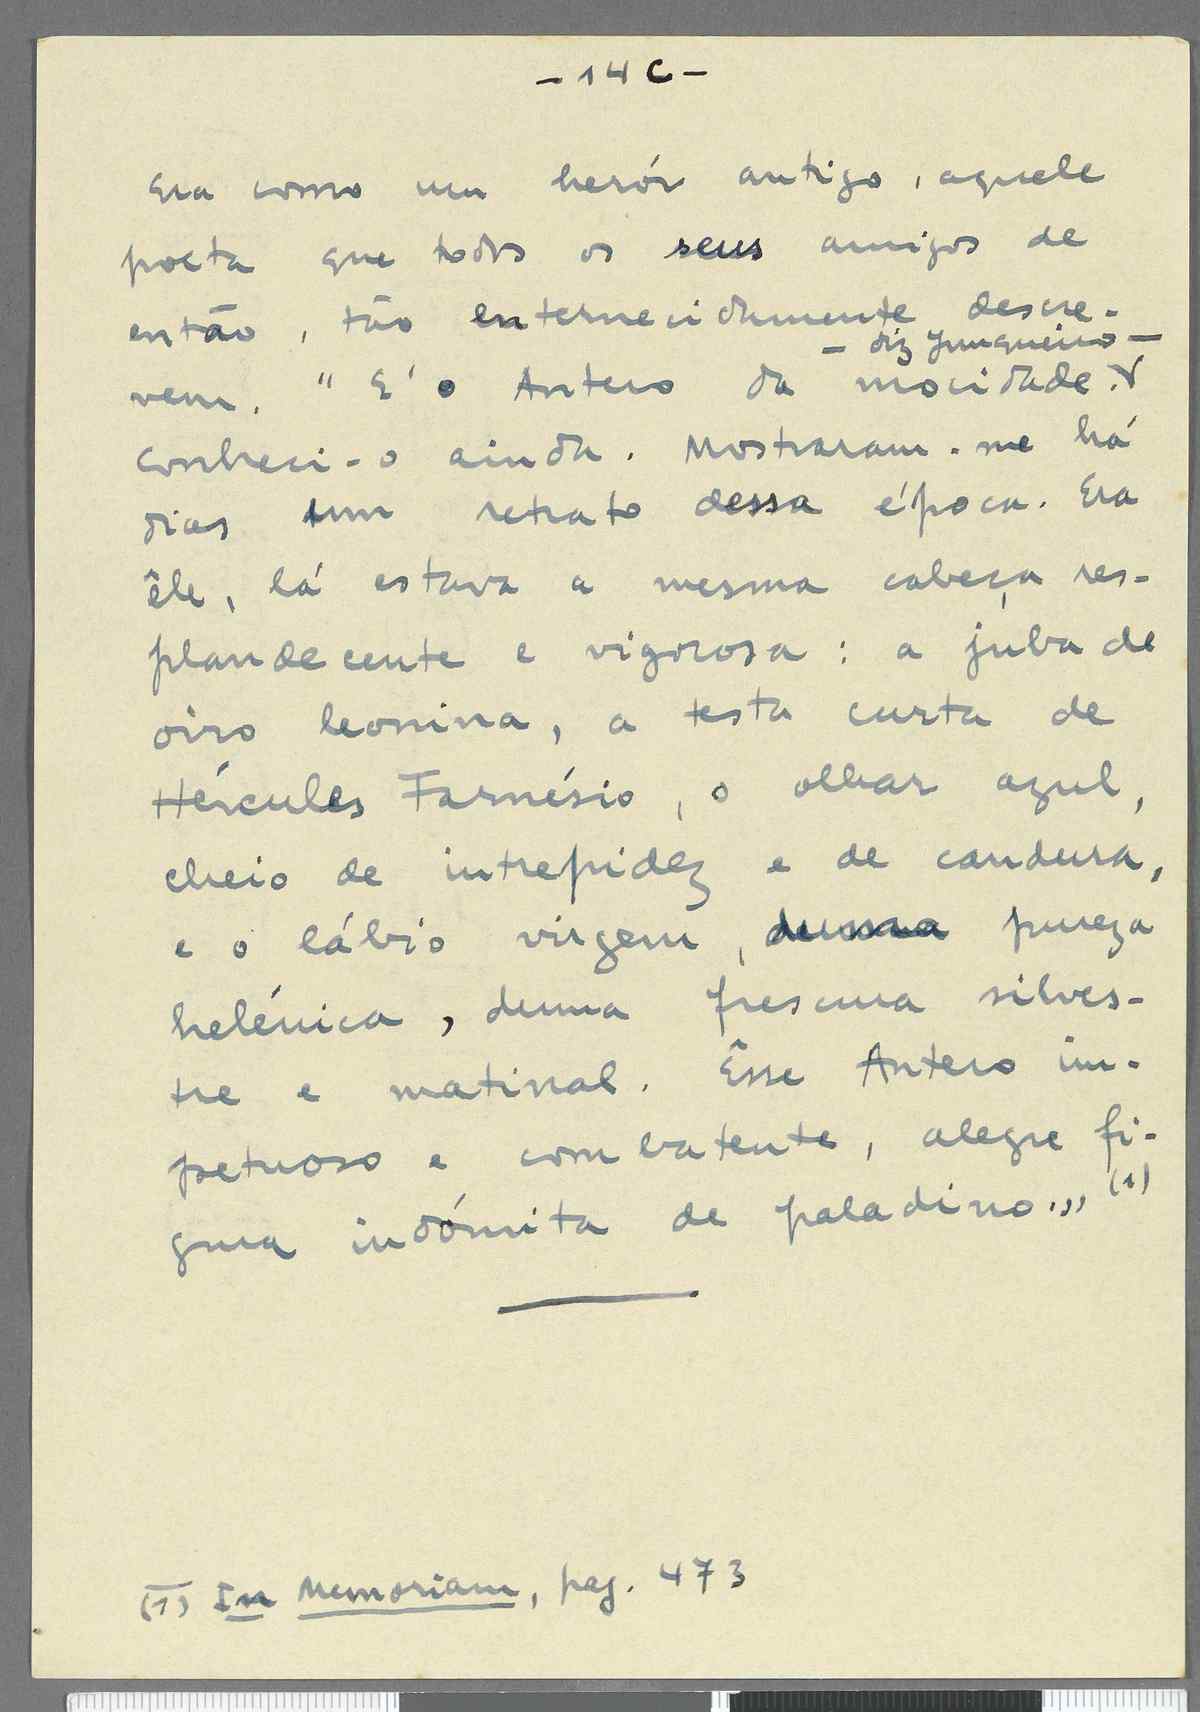 - 14 C -
Era como um herói antigo, aquele
poeta que todos os seus amigos de
então, tão enternecidamente descre-
- diz Junqueiro -
vem. "É o Antero da mocidade.
Conheci-o ainda. Mostraram-me há
dias um retrato dessa época. Era
êle, lá estava a mesma cabeça res-
plandecente e vigorosa: a juba de
oiro leonina, a testa curta de
Hércules Farnésio, o olhar azul,
cheio de intrepidez e de candura,
e o lábio virgem, duma pureza
helénica, duma frescura silves-
tre e matinal. Êsse Antero im-
petuoso e combatente, alegre fi-
gura indómita de paladino..." (1)
(1) In Memoriam, pag. 473